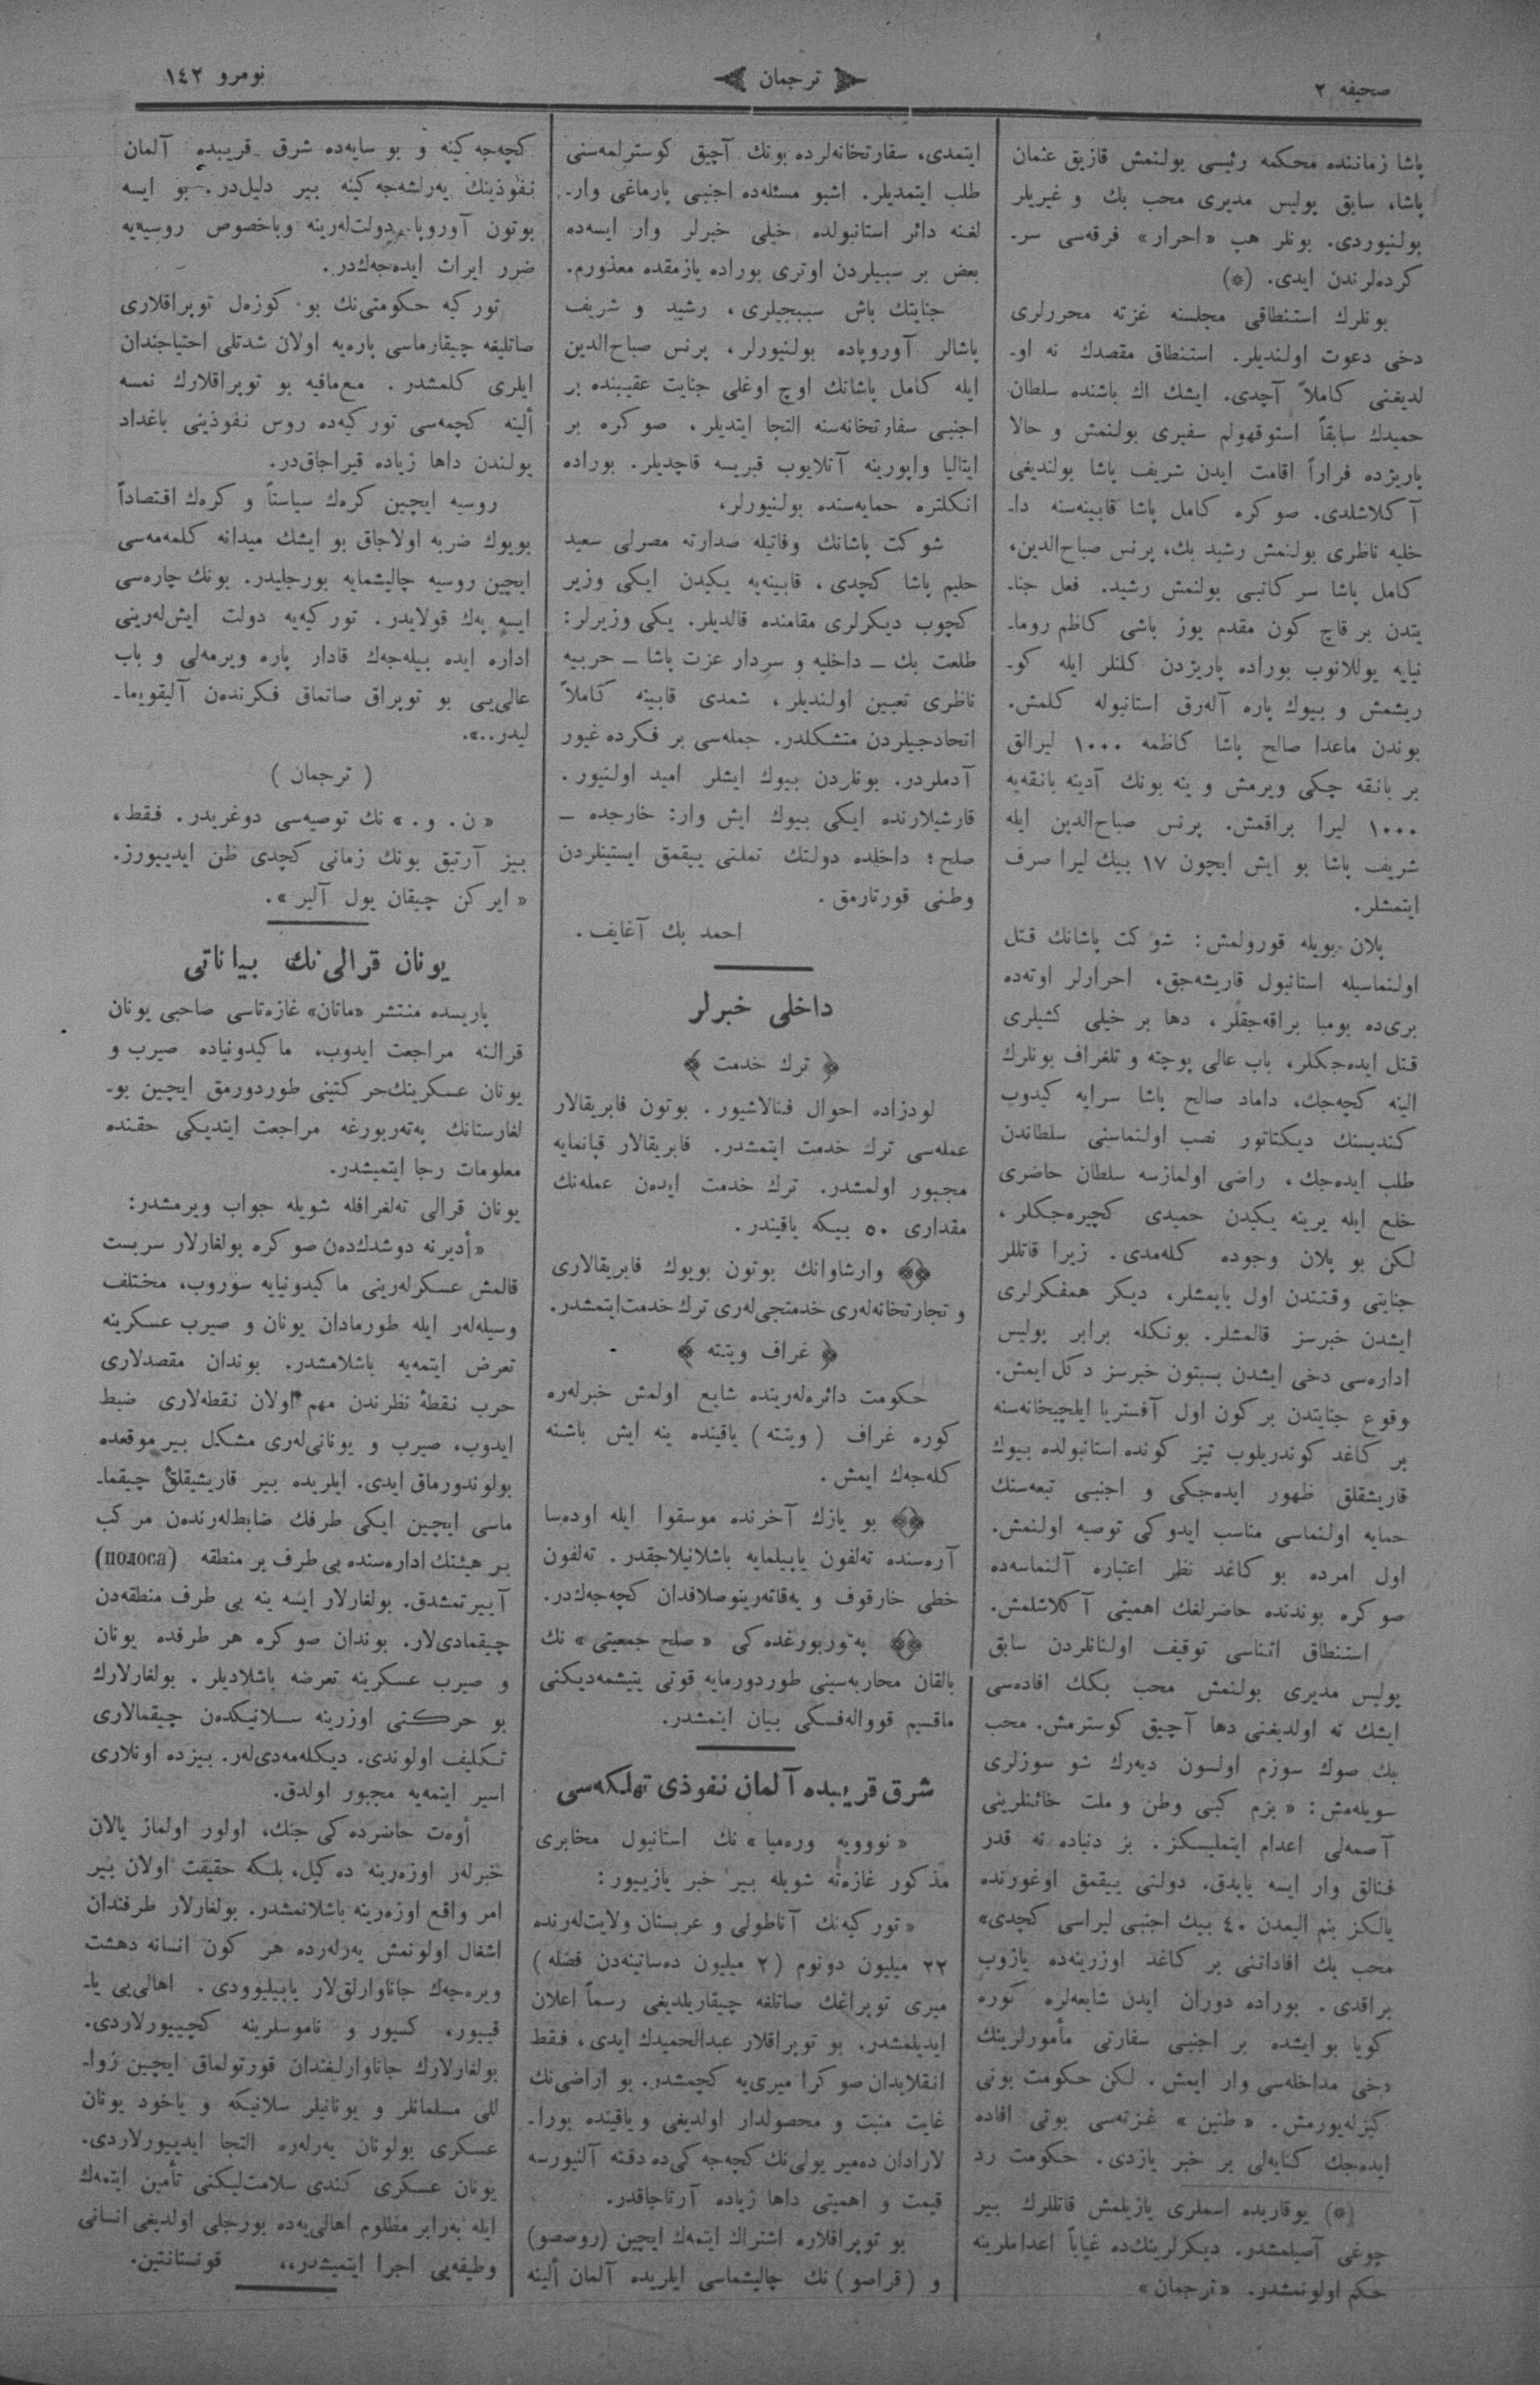 صحیفه ٢
ترجمان
نومرو ١٤٢
پاشا زماننده محكمه رئیسی بولنمش قازیق عثمان
پاشا، سابق پولیس مدیری محب بك و غیریلر
بولنیوردی. بونلر هپ «احرار» فرقه‌سی سر-
كرده‌لرندن ایدی. (*)
بونلرك استنطاقی مجلسنه غزته محررلری
دخی دعوت اولندیلر. استنطاق مقصدك نه او-
لدیغنی كاملاً آچدی. ایشك اك باشنده سلطان
حمیدك سابقاً استوقهولم سفیری بولنمش و حالا
پاریژده فراراً اقامت ایدن شریف پاشا بولندیغی
آكلاشلدی. صوكره كامل پاشا قابینه‌سنه دا-
خلیه ناظری بولنمش رشید بك، پرنس صباح‌الدین،
كامل پاشا سركاتبی بولنمش رشید. فعل جنا-
یتدن برقاچ كون مقدم یوز باشی كاظم روما-
نیایه یوللانوب بوراده پاریژدن كلنلر ایله كو-
ریشمش و بیوك پاره آله‌رق استانبوله كلمش.
بوندن ماعدا صالح پاشا كاظمه ١٠٠٠ لیرالق
بر بانقه چكی ویرمش و ینه بونك آدینه بانقه‌یه
١٠٠٠ لیرا براقمش. پرنس صباح‌الدین ایله
شریف پاشا بو ایش ایچون ١٧ بیك لیرا صرف
ایتمشلر.
پلان بویله قورولمش: شوكت پاشانك قتل
اولنماسیله استانبول قاریشه‌جق، احرارلر اوته‌ده
بری‌ده بومبا براقه‌جقلر، دها بر خیلی كشیلری
قتل ایده‌جكلر، باب عالی پوچته و تلغراف بونلرك
الینه كچه‌جك، داماد صالح پاشا سرایه كیدوب
كندیسنك دیكتاتور نصب اولنماسینی سلطاندن
طلب ایده‌جك، راضی اولمازسه سلطان حاضری
خلع ایله یرینه یكیدن حمیدی كچیره‌جكلر،
لكن بو پلان وجوده كله‌مدی. زیرا قاتللر
جنایتی وقتندن اول یاپمشلر، دیكر همفكرلری
ایشدن خبرسز قالمشلر. بونكله برابر پولیس
اداره‌سی دخی ایشدن بسبتون خبرسز دكل ایمش.
وقوع جنایتدن بركون اول آفستریا ایلچیخانه‌سنه
بر كاغد كوندریلوب تیز كونده استانبولده بیوك
قاریشقلق ظهور ایده‌جكی و اجنبی تبعه‌سنك
حمایه اولنماسی مناسب ایدوكی توصیه اولنمش.
اول امرده بو كاغد نظر اعتباره آلنماسه‌ده
صوكره بوندنده حاضرلغك اهمیتی آكلاشلمش.
استنطاق اثناسی توقیف اولنانلردن سابق
پولیس مدیری بولنمش محب بكك افاده‌سی
ایشك نه اولدیغنی دها آچیق كوسترمش. محب
بك صوك سوزم اولسون دیه‌رك شو سوزلری
سویله‌مش: «بزم كبی وطن و ملت خائنلرینی
آصمه‌لی اعدام ایتملیسكز. بز دنیاده نه قدر
فنالق وار ایسه یاپدق. دولتی ییقمق اوغورنده
یالكز بنم الیمدن ٤٠ بیك اجنبی لیراسی كچدی»
محب بك افاداتنی بر كاغد اوزرینه‌ده یازوب
براقدی. بوراده دوران ایدن شایعه‌لره كوره
كویا بو ایشده بر اجنبی سفارتی مأمورلرینك
دخی مداخله‌سی وار ایمش. لكن حكومت بونی
كیزله‌یورمش. «طنین» غزته‌سی بونی افاده
ایده‌جك كنایه‌لی بر خبر یازدی. حكومت رد
(*) یوقاریده اسملری یازیلمش قاتللرك بیر
چوغی آصیلمشدر. دیكرلرینك‌ده غیاباً اعداملرینه
حكم اولونمشدر. «ترجمان»
ایتمدی، سفارتخانه‌لرده بونك آچیق كوسترلمه‌سنی
طلب ایتمدیلر. اشبو مسئله‌ده اجنبی پارماغی وار-
لغنه دائر استانبولده خیلی خبرلر وار ایسه‌ده
بعض بر سببلردن اوتری بوراده یازمقده معذورم.
جنایتك باش سببجیلری، رشید و شریف
پاشالر آوروپاده بولنیورلر، پرنس صباح‌الدین
ایله كامل پاشانك اوچ اوغلی جنایت عقیبنده بر
اجنبی سفارتخانه‌سنه التجا ایتدیلر، صوكره بر
ایتالیا واپورینه آتلایوب قبریسه قاچدیلر. بوراده
انكلتره حمایه‌سنده بولنیورلر،
شوكت پاشانك وفاتیله صدارته مصرلی سعید
حلیم پاشا كچدی، قابینه‌یه یكیدن ایكی وزیر
كچوب دیكرلری مقامنده قالدیلر. یكی وزیرلر:
طلعت بك ـ داخلیه و سردار عزت پاشا ـ حربیه
ناظری تعیین اولندیلر، شمدی قابینه كاملاً
اتحادجیلردن متشكلدر. جمله‌سی بر فكرده غیور
آدملردر. بونلردن بیوك ایشلر امید اولنیور.
قارشیلارنده ایكی بیوك ایش وار: خارجده ـ
صلح؛ داخلده دولتك تملنی ییقمق ایستینلردن
وطنی قورتارمق.
احمد بك آغایف.
داخلی خبرلر
﴿ ترك خدمت ﴾
لودزاده احوال فنالاشیور. بوتون فابریقالار
عمله‌سی ترك خدمت ایتمشدر. فابریقالار قپانمایه
مجبور اولمشدر. ترك خدمت ایدن عمله‌نك
مقداری ٥٠ بیكه یاقیندر.
وارشاوانك بوتون بویوك فابریقالاری
و تجارتخانه‌لری خدمتجی‌لری ترك خدمت‌ایتمشدر.
﴿ غراف ویتته ﴾
حكومت دائره‌لرینده شایع اولمش خبرلره
كوره غراف (ویتته) یاقینده ینه ایش باشنه
كله‌جك ایمش.
بو یازك آخرنده موسقوا ایله اوده‌سا
آره‌سنده ته‌لفون یاپیلمایه باشلانیلاجقدر. ته‌لفون
خطی خارقوف و یه‌قاته‌رینوصلافدان كچه‌جه‌كدر.
په‌تربورغده‌كی «صلح جمعیتی» نك
بالقان محاربه‌سینی طوردورمایه قوتی یتیشمه‌دیكنی
ماقسیم قوواله‌فسكی بیان ایتمشدر.
شرق قریبده آلمان نفوذی تهلكه‌سی
«نوویه وره‌میا» نك استانبول مخابری
مذكور غازه‌ته شویله بیر خبر یازییور:
«توركیه‌نك آناطولی و عربستان ولایت‌لرنده
٢٢ میلیون دونوم (٢ میلیون ده‌ساتینه‌دن فضله)
میری توپراغك صاتلغه چیقاریلدیغی رسماً اعلان
ایدیلمشدر. بو توپراقلار عبدالحمیدك ایدی، فقط
انقلابدان صوكرا میری‌یه كچمشدر. بو اراضی‌نك
غایت منبت و محصولدار اولدیغی و یاقینده بورا-
لارادان ده‌میر یولی‌نك كچه‌جه‌كی‌ده دقته آلنیورسه
قیمت و اهمیتی داها زیاده آرتاجاقدر.
بو توپراقلاره اشتراك ایتمه‌ك ایچین (روصصو)
و (قراصو) نك چالیشماسی ایلریده آلمان ألینه
كچه‌جه‌كینه و بو سایه‌ده شرق قریبده آلمان
نفوذینك یه‌رلشه‌جه‌كینه بیر دلیل‌در. بو ایسه
بوتون آوروپا دولت‌لرینه وباخصوص روسیه‌یه
ضرر ایراث ایده‌جه‌كدر.
توركیه حكومتی‌نك بو كوزه‌ل توپراقلاری
صاتلیغه چیقارماسی پاره‌یه اولان شدتلی احتیاجندان
ایلری كلمشدر. مع‌مافیه بو توپراقلارك نمسه
ألینه كچمه‌سی توركیه‌ده روس نفوذینی باغداد
یولندن داها زیاده قیراجاق‌در.
روسیه ایچین كره‌ك سیاستاً و كره‌ك اقتصاداً
بویوك ضربه اولاجاق بو ایشك میدانه كلمه‌مه‌سی
ایچین روسیه چالیشمایه بورجلیدر. بونك چاره‌سی
ایسه پك قولایدر. توركیه‌یه دولت ایش‌لرینی
اداره ایده بیله‌جه‌ك قادار پاره ویرمه‌لی و باب
عالی‌یی بو توپراق صاتماق فكرنده‌ن آلیقویما-
لیدر..».
(ترجمان)
«ن. و.» نك توصیه‌سی دوغریدر. فقط،
بیز آرتیق بونك زمانی كچدی ظن ایدییورز.
«ایركن چیقان یول آلیر».
یونان قرالی‌نك بیاناتی
پاریسده منتشر «ماتان» غازه‌تاسی صاحبی یونان
قرالنه مراجعت ایدوب، ماكیدونیاده صیرب و
یونان عسكرینك‌حركتینی طوردورمق ایچین بو-
لغارستانك په‌ته‌ربورغه مراجعت ایتدیكی حقنده
معلومات رجا ایتمیشدر.
یونان قرالی ته‌لغرافله شویله جواب ویرمشدر:
«أدیرنه دوشدكده‌ن صوكره بولغارلار سربست
قالمش عسكرله‌رینی ماكیدونیایه سوروب، مختلف
وسیله‌له‌ر ایله طورمادان یونان و صیرب عسكرینه
تعرض ایتمه‌یه باشلامشدر. بوندان مقصدلاری
حرب نقطهٔ نظرندن مهم اولان نقطه‌لاری ضبط
ایدوب، صیرب و یونانی‌لری مشكل بیر موقعده
بولوندورماق ایدی. ایلریده بیر قاریشیقلق چیقما-
ماسی ایچین ایكی طرفك ضابط‌لرندن مركب
بر هیئتك اداره‌سنده بی طرف بر منطقه (полоса)
آییرتمشدق. بولغارلار ایسه ینه بی طرف منطقه‌دن
چیقمادی‌لار. بوندان صوكره هر طرفده یونان
و صیرب عسكرینه تعرضه باشلادیلر. بولغارلارك
بو حركتی اوزرینه سلانیكده‌ن چیقمالاری
تكلیف اولوندی. دیكله‌مه‌دی‌له‌ر. بیزده اونلاری
اسیر ایتمه‌یه مجبور اولدق.
أوه‌ت حاضرده‌كی جنك، اولور اولماز یالان
خبرله‌ر اوزه‌رینه ده‌كیل، بلكه حقیقت اولان بیر
امر واقع اوزه‌رینه باشلانمشدر. بولغارلار طرفندان
اشغال اولونمش یه‌رله‌رده هر كون انسانه دهشت
ویره‌جه‌ك جاناوارلق‌لار یاپیلیوودی. اهالی‌یی یا-
قییور، كسیور و ناموسلرینه كچییورلاردی.
بولغارلارك جاناوارلغندان قورتولماق ایچین زوا-
للی مسلمانلر و یونانیلر سلانیكه و یاخود یونان
عسكری بولونان یه‌رله‌ره التجا ایدییورلاردی.
یونان عسكری كندی سلامت‌لیكنی تأمین ایتمه‌ك
ایله به‌رابر مظلوم اهالی‌یه‌ده بورجلی اولدیغی انسانی
وظیفه‌یی اجرا ایتمیشدر،، قونستانتین.